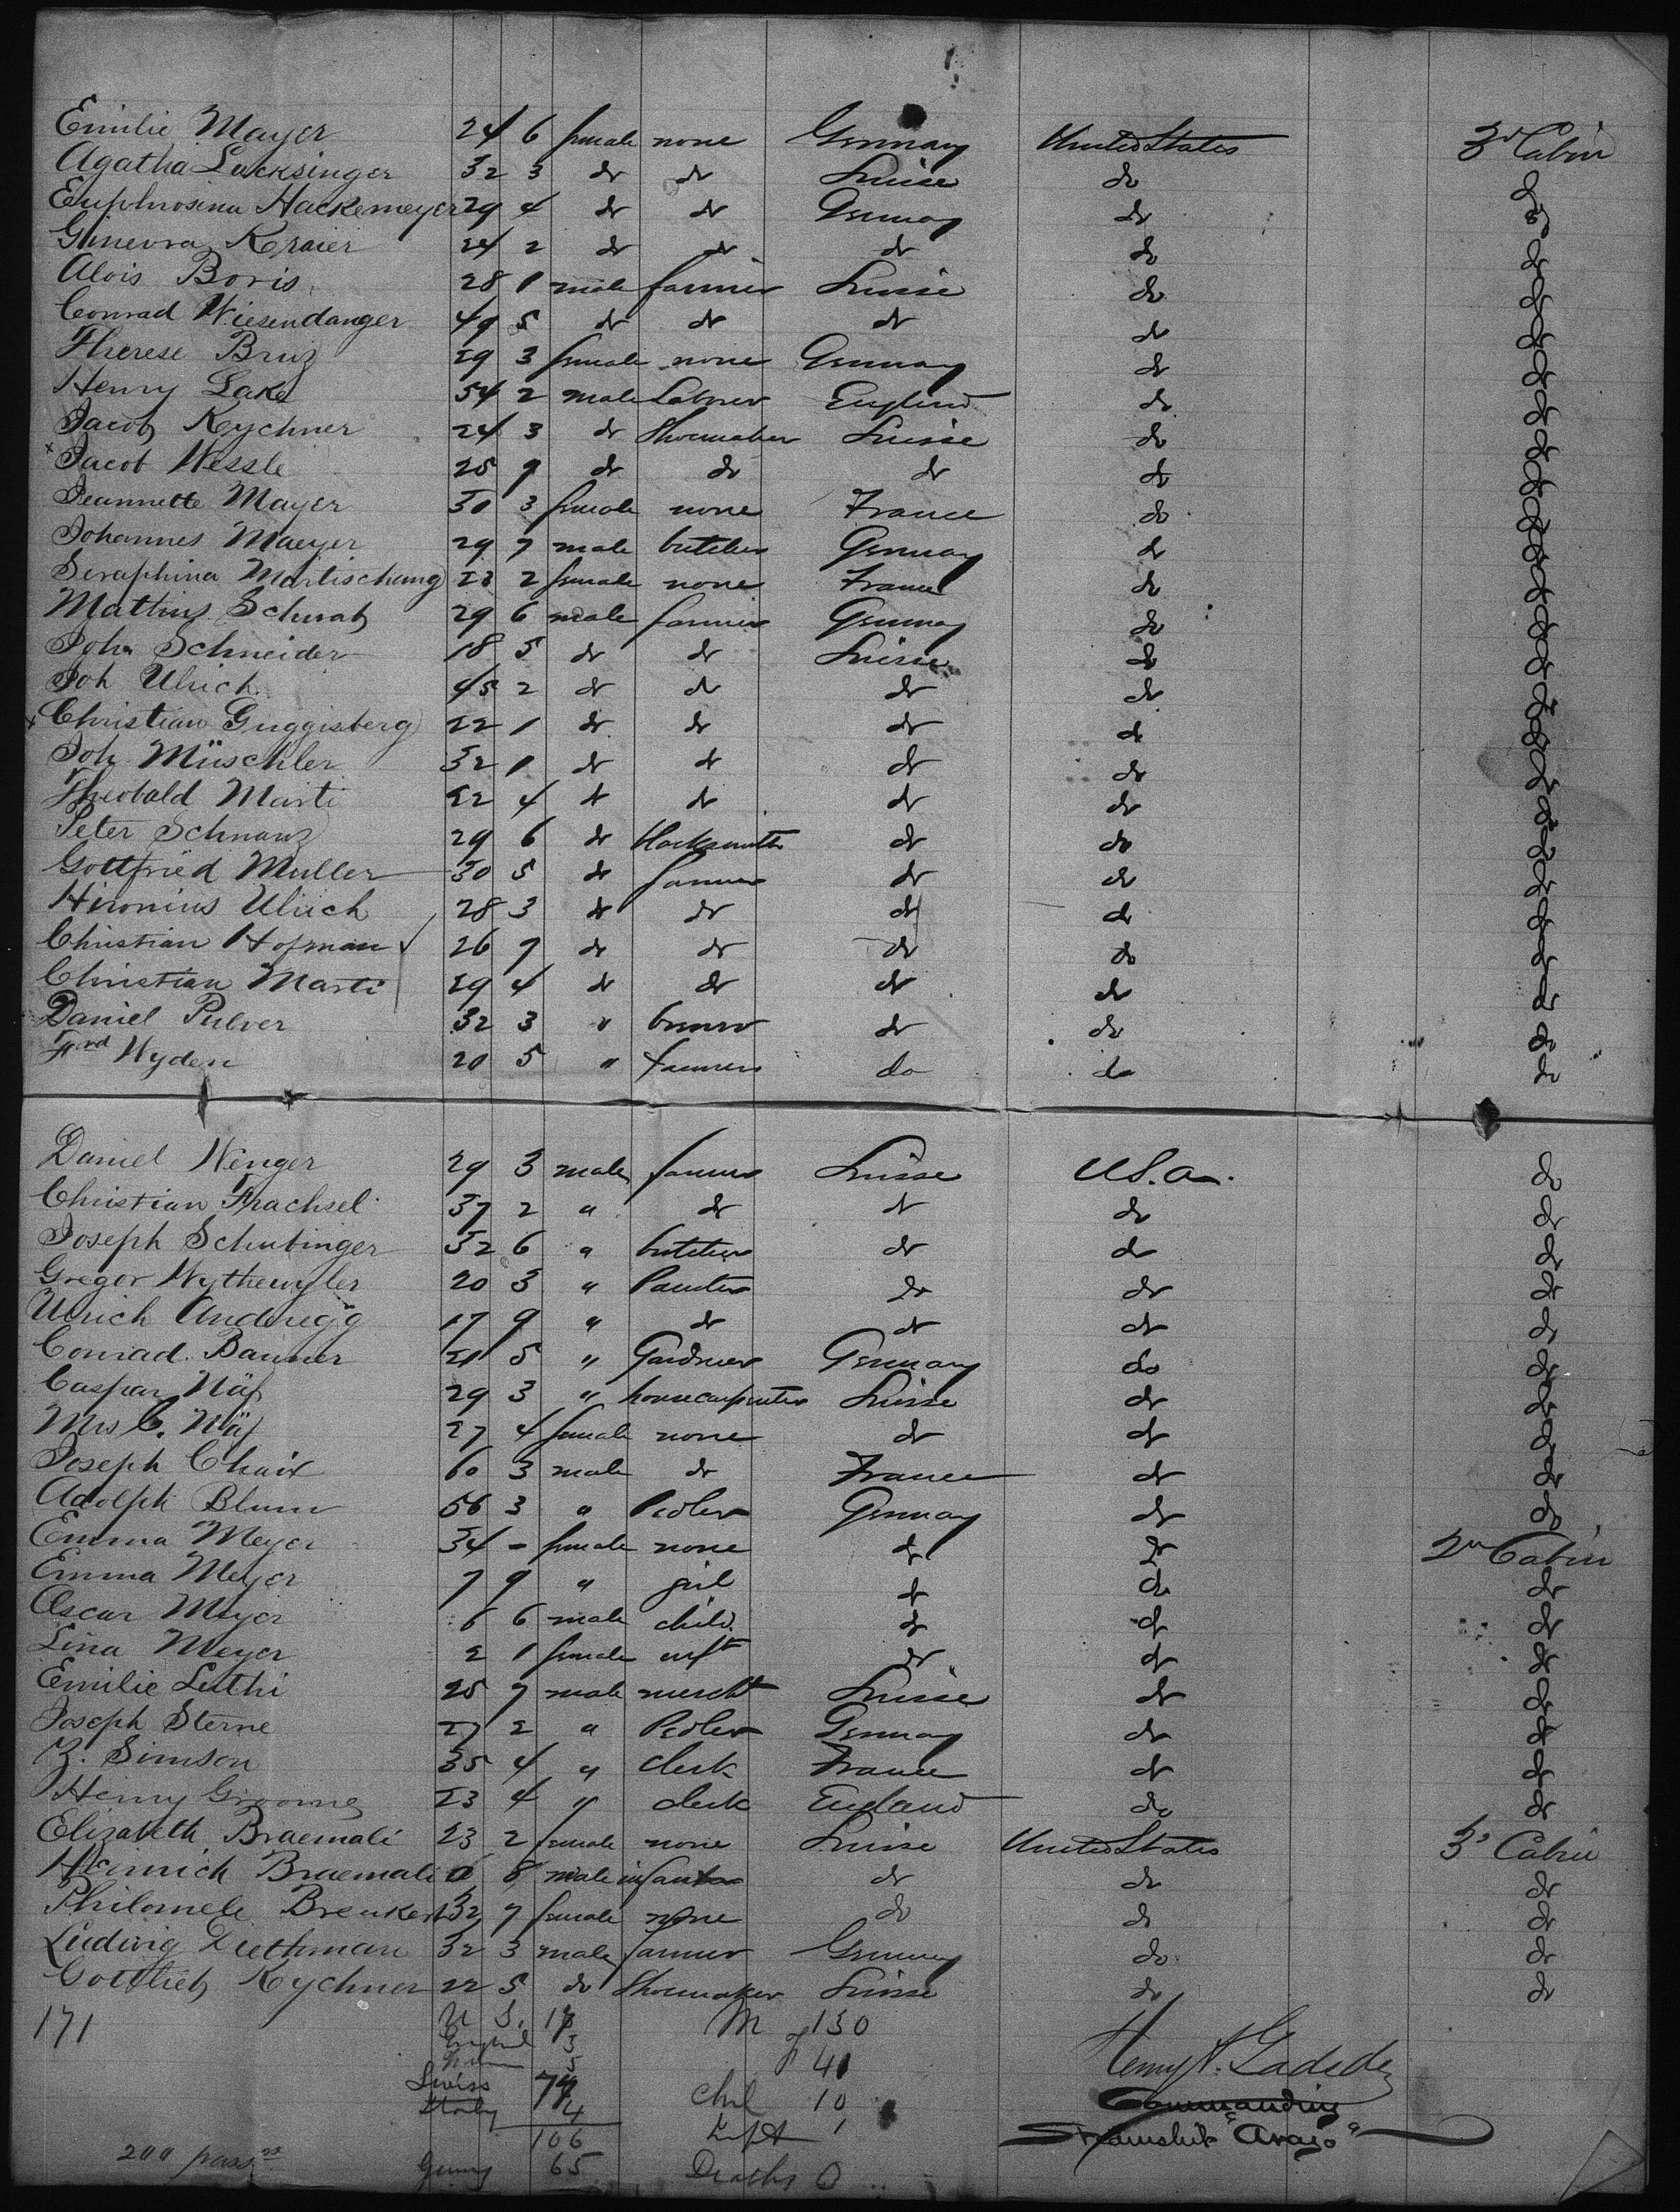 Emilie Mayer 24 6 female none Germany United States 3d Cabin
Agatha Lucksinger 32 3 do do Suisse do do
Euphrosina Hackemeyer 29 4 do do Germany do do
Ginevra Kraier 24 2 do do do do do
Alois Boris 28 1 male farmer Suisse do do
Conrad Wiesendanger 49 5 do do do do do
Therese Bruz 29 3 female none Germany do do
Henry Lake 54 2 male Laborer England do do
Jacob Rychner 24 3 do Shoemaker Suisse do do
x Jacob Wessle 25 9 do do do do do
Jeannette Mayer 30 3 female none France do do
Johannes Maeyer 29 7 male butcher Germany do do
Seraphina Martischang 23 2 female none France do do
Mathias Schwab 29 6 male farmer Germany do do
John Schneider 18 5 do do Suisse do do
Joh Ulrich 45 2 do do do do do
x Christian Guggisberg 22 1 do do do do do
Joh Müschler 32 1 do do do do do
Theobald Marti 22 4 do do do do do
Peter Schwanz 29 6 do blacksmith do do do
Gottfried Muller 30 5 do farmer do do do
Hironius Ulrich 28 3 do do do do do
Christian Hofman 26 7 do do do do do
Christian Marti 29 4 do do do do do
Daniel Pulver 32 3 " do do do
Frd Wyden 20 5 " farmer do do do
Daniel Wenger 29 3 male farmer Suisse U.S.a. do
Christian Trachsel 37 2 " do do do do
Joseph Schubinger 32 6 " butcher do do do
Gregor Wythewyler 20 3 " Painter do do do
Ulrich Anderegg 17 9 " do do do do
Conrad Banner 21 5 " Gardner Germany do do
Caspar Näf 29 3 " housecarpenter Suisse do do
Mrs C. Näf 27 4 female none do do do
Joseph Chaix 60 3 male do France do do
Adolph Blum 56 3 " Pedler Germany do do
Emma Meyer 34 - female none do do 2n Cabin
Emma Meyer 7 9 " girl do do do
Oscar Meyer 6 6 male child do do do
Lina Meyer 2 1 female inft do do do
Emilie Luthi 25 7 male mercht Suisse do do
Joseph Sterne 27 2 " Pedler Germany do do
Z. Simson 35 4 " Clerk France do do
Henry Groome 23 4 " clerk England do do
Elizabeth Braemali 23 2 female none Suisse United States 3d Cabin
Heinrich Braemali 0 8 male infant do do do
Philomele Breuker 32 7 female none do do do
Ludwig Duthman 32 3 male farmer Germany do do
Gottlieb Rychner 22 5 do Shoemaker Suisse do do
171 U S. M 130
England 3 F 41
5
Swiss Chil 10
Italy 4 Inft 1
106
Germy 65 Deaths 0
200 passrs
Henry A. Gadsden
Commanding
Steamship "Arago"